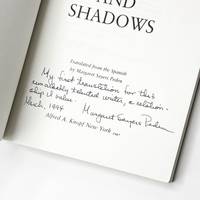 AND
SHADOWS
Translated from the Spanish
by Margaret Sayers Peden
My first translation for this
remarkably talented writer, a relation-
ship I value. Margaret Sayers Peden
March, 1994
Alfred A. Knopf New York 1987